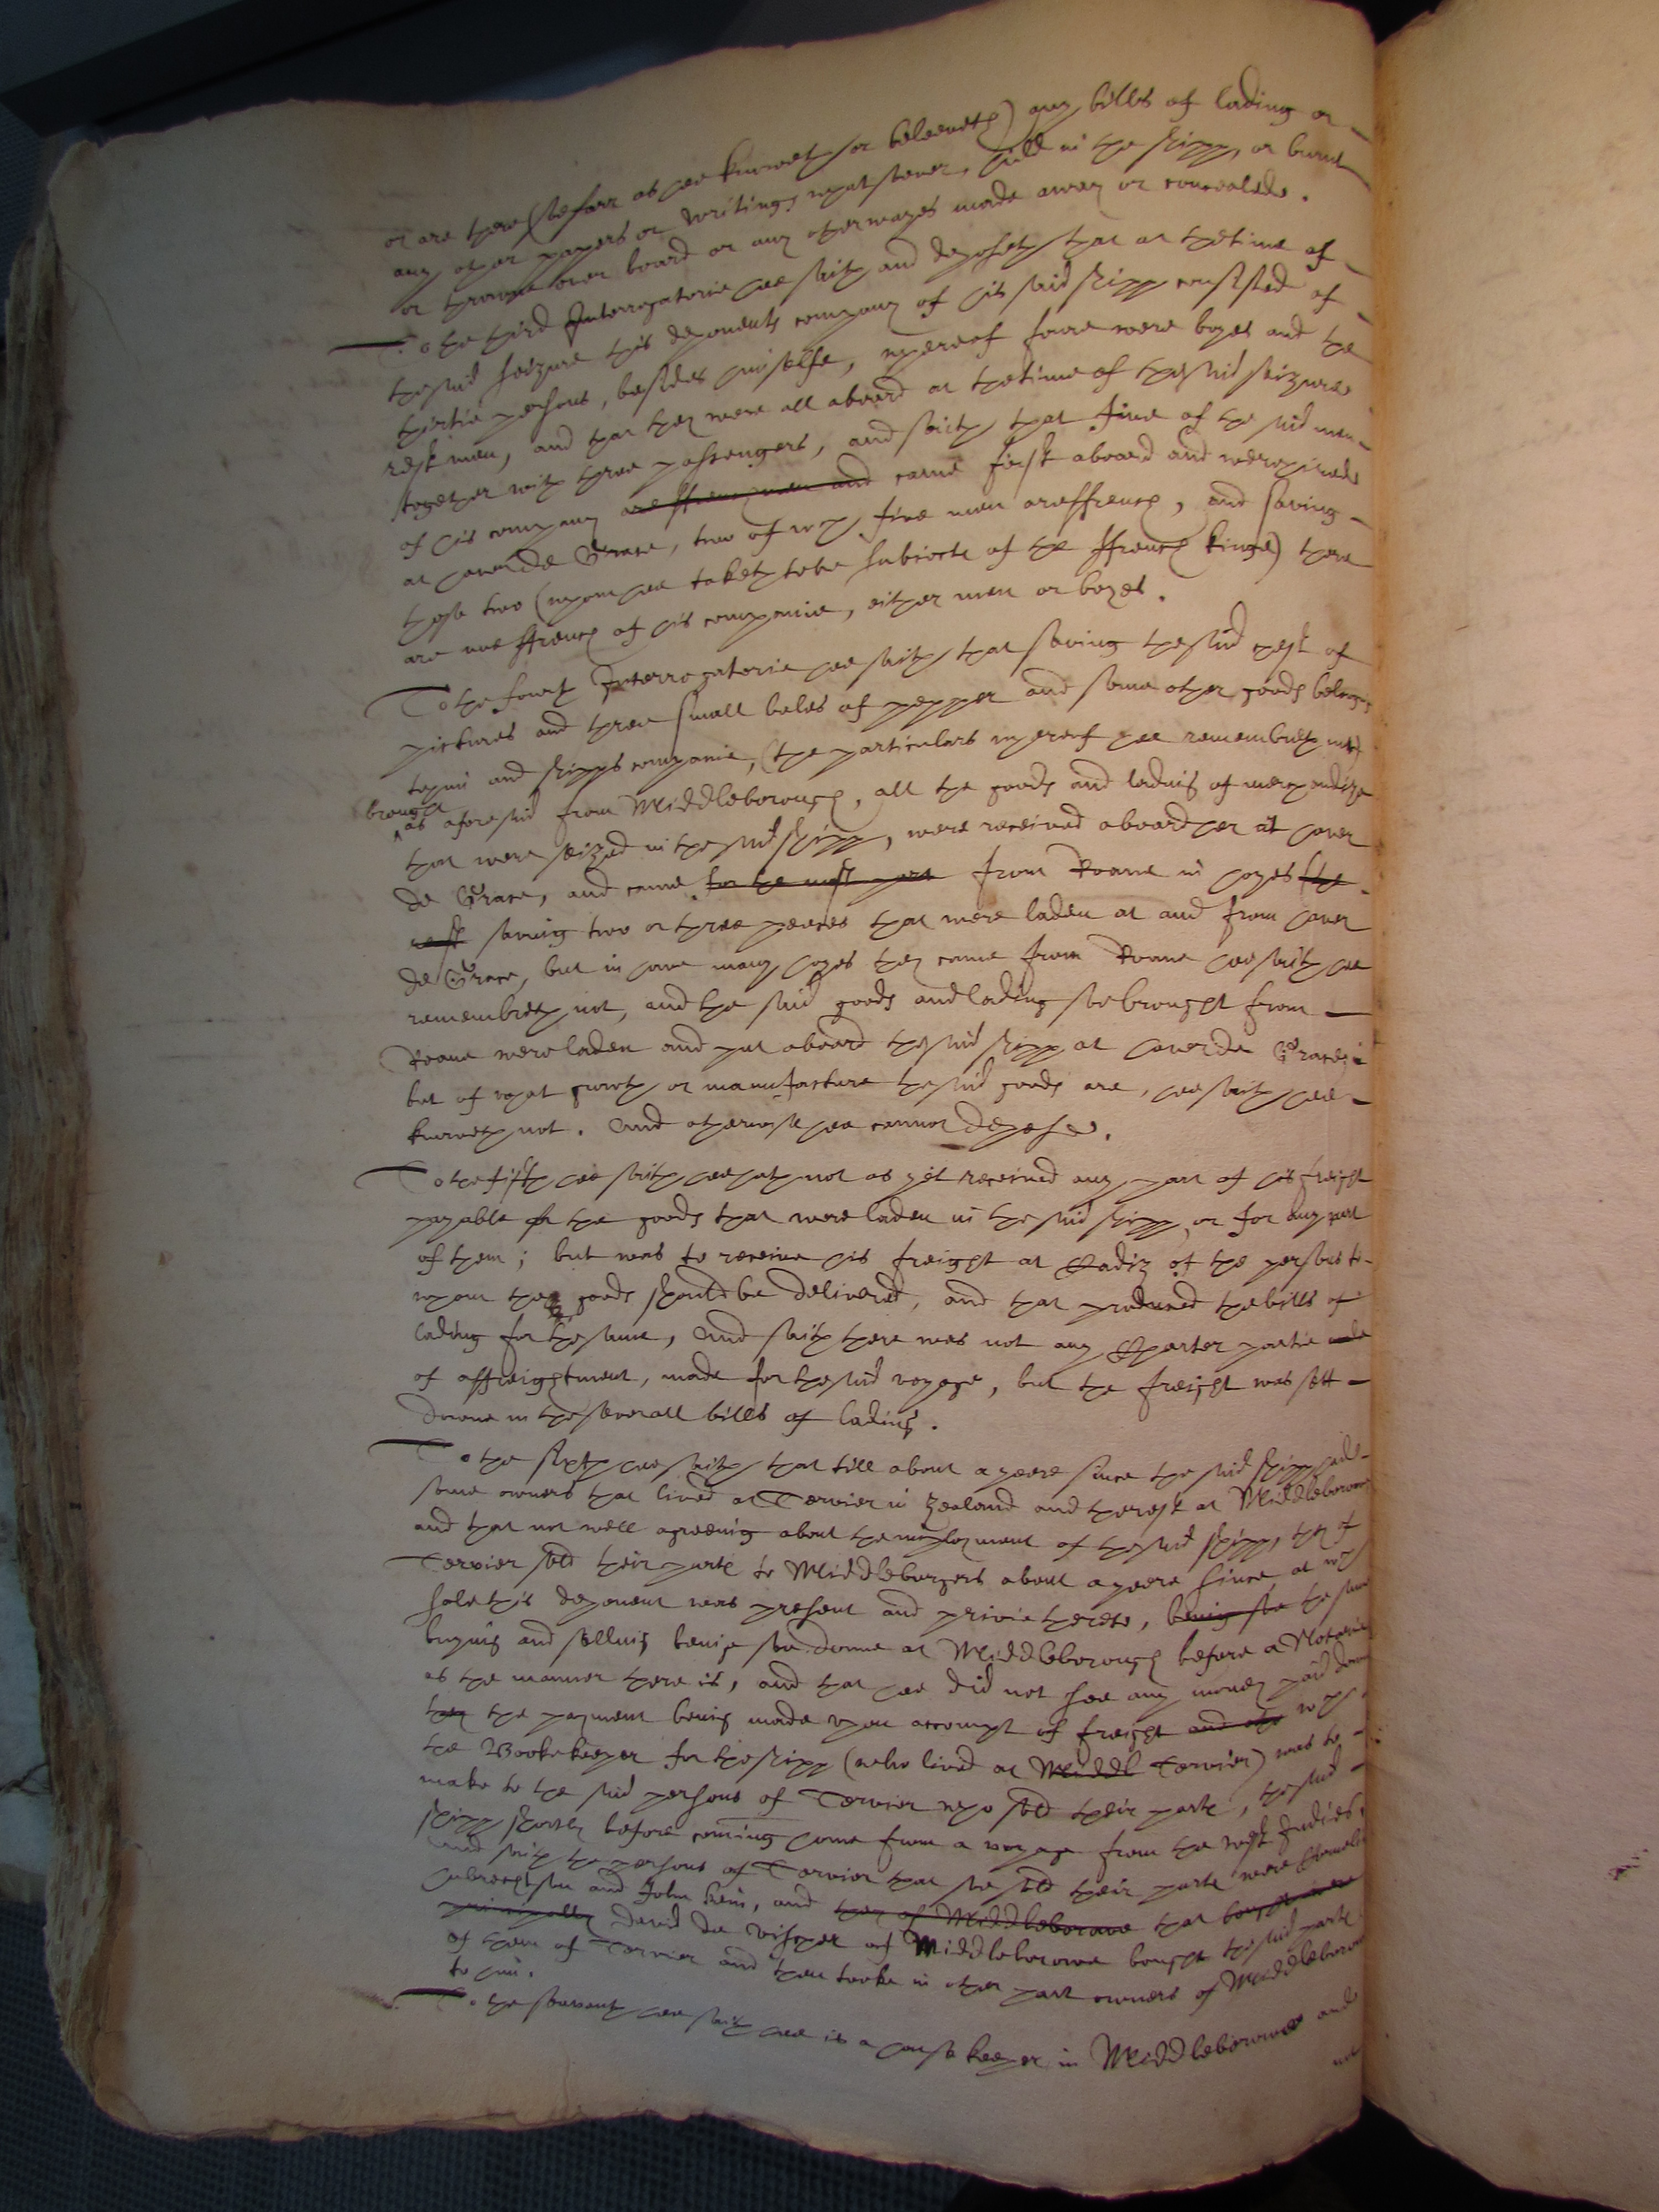 or are there (soe farr as hee knoweth or beleeveth) any bills of lading or
any other papers or writings whatsoever, hidd in the shipp, or burnt
or throwne over board or any otherwayes made away or concealed.
To the third Interrogatorie hee saith and deposeth that at the time of
the said seizure this deponents company of his said shipp consisted of
thirtie persons, besides himselfe, whereof foure were boyes and the
rest men, and that they were all aboard at the time of the said seizure
together with three passengers, and saith that five of the said men
of his company are ffrenchmen and came first aboard and were hired
at haver de Grace, two of wch five men are ffrench, and saving
those two (whom hee taketh to be subiects of the ffrench kinge) there
are noe ffrench of his companie, either men or boyes.
To the fourth Interrogatorie hee saith that saving the said chest of
pictures and three small bales of pepper and some other goods belonging
to him and shipps companie, (the particulars whereof hee remembreth not)
brought
as aforesaid from Middleborough, all the goods and lading of merchandize
that were seized in the said shipp, were received aboard her at haver
de Grace, and came for the most part from Roane in hoyes the
rest saving two or three peeces that were laden at and from haver
de Grace, but in how many hoyes they came from Roane hee saith hee
remembreth not, and the said goods and lading soe brought from
Roane were laden and put aboard the said shipp at haver de Grace
but of what growth or manufacture the said goods are, hee saith hee
knoweth not. And otherwise hee cannot depose.
To the fifth hee saith hee hath not as yet received any part of his freight
payable for the goods that were laden in the said shipp or for any part
of them; but was to receive his freight at Cadiz of the persons to
whom the goods should be delivered, and that produced the bills of
lading for the same, And saith there was not any Charter partie
of affreightment, made for the said voyage, but the freight was sett
downe in the severall bills of lading.
To the sixth hee saith that till about a yeere since the said shipp had
some owners that lived at Terveer in Zealand and the rest at Middleborowe
and that not well agreeing about the imployment of the said shipp, they of
Terveer sold their parts to Middleburgers about a yeere since, at wch
sale this deponent was present and privie thereto, being soe the said
buying and selling being soe donne at Middleborough before a Notarie
as the manner there is, and that hee did not see any money paid downe
they the payment being made upon accompt of freight and wch
the Bookekeeper for the shipp (who lived at Middl Terveer) was to
make to the said persons of Terveer who sold their parts, the said
shipp shortly before coming home from a voyage from the west Indies,
and saith the persons of Terveer that soe sold their parts were
and John and they of Middleborowe that bought
principally David de Vischer of Middleborowe bought the said parts
of them of Terveer and then tooke in other part owners of Middleborowe
to him.
To the seaventh hee saith hee is a house keeper in Middleborowe and
not